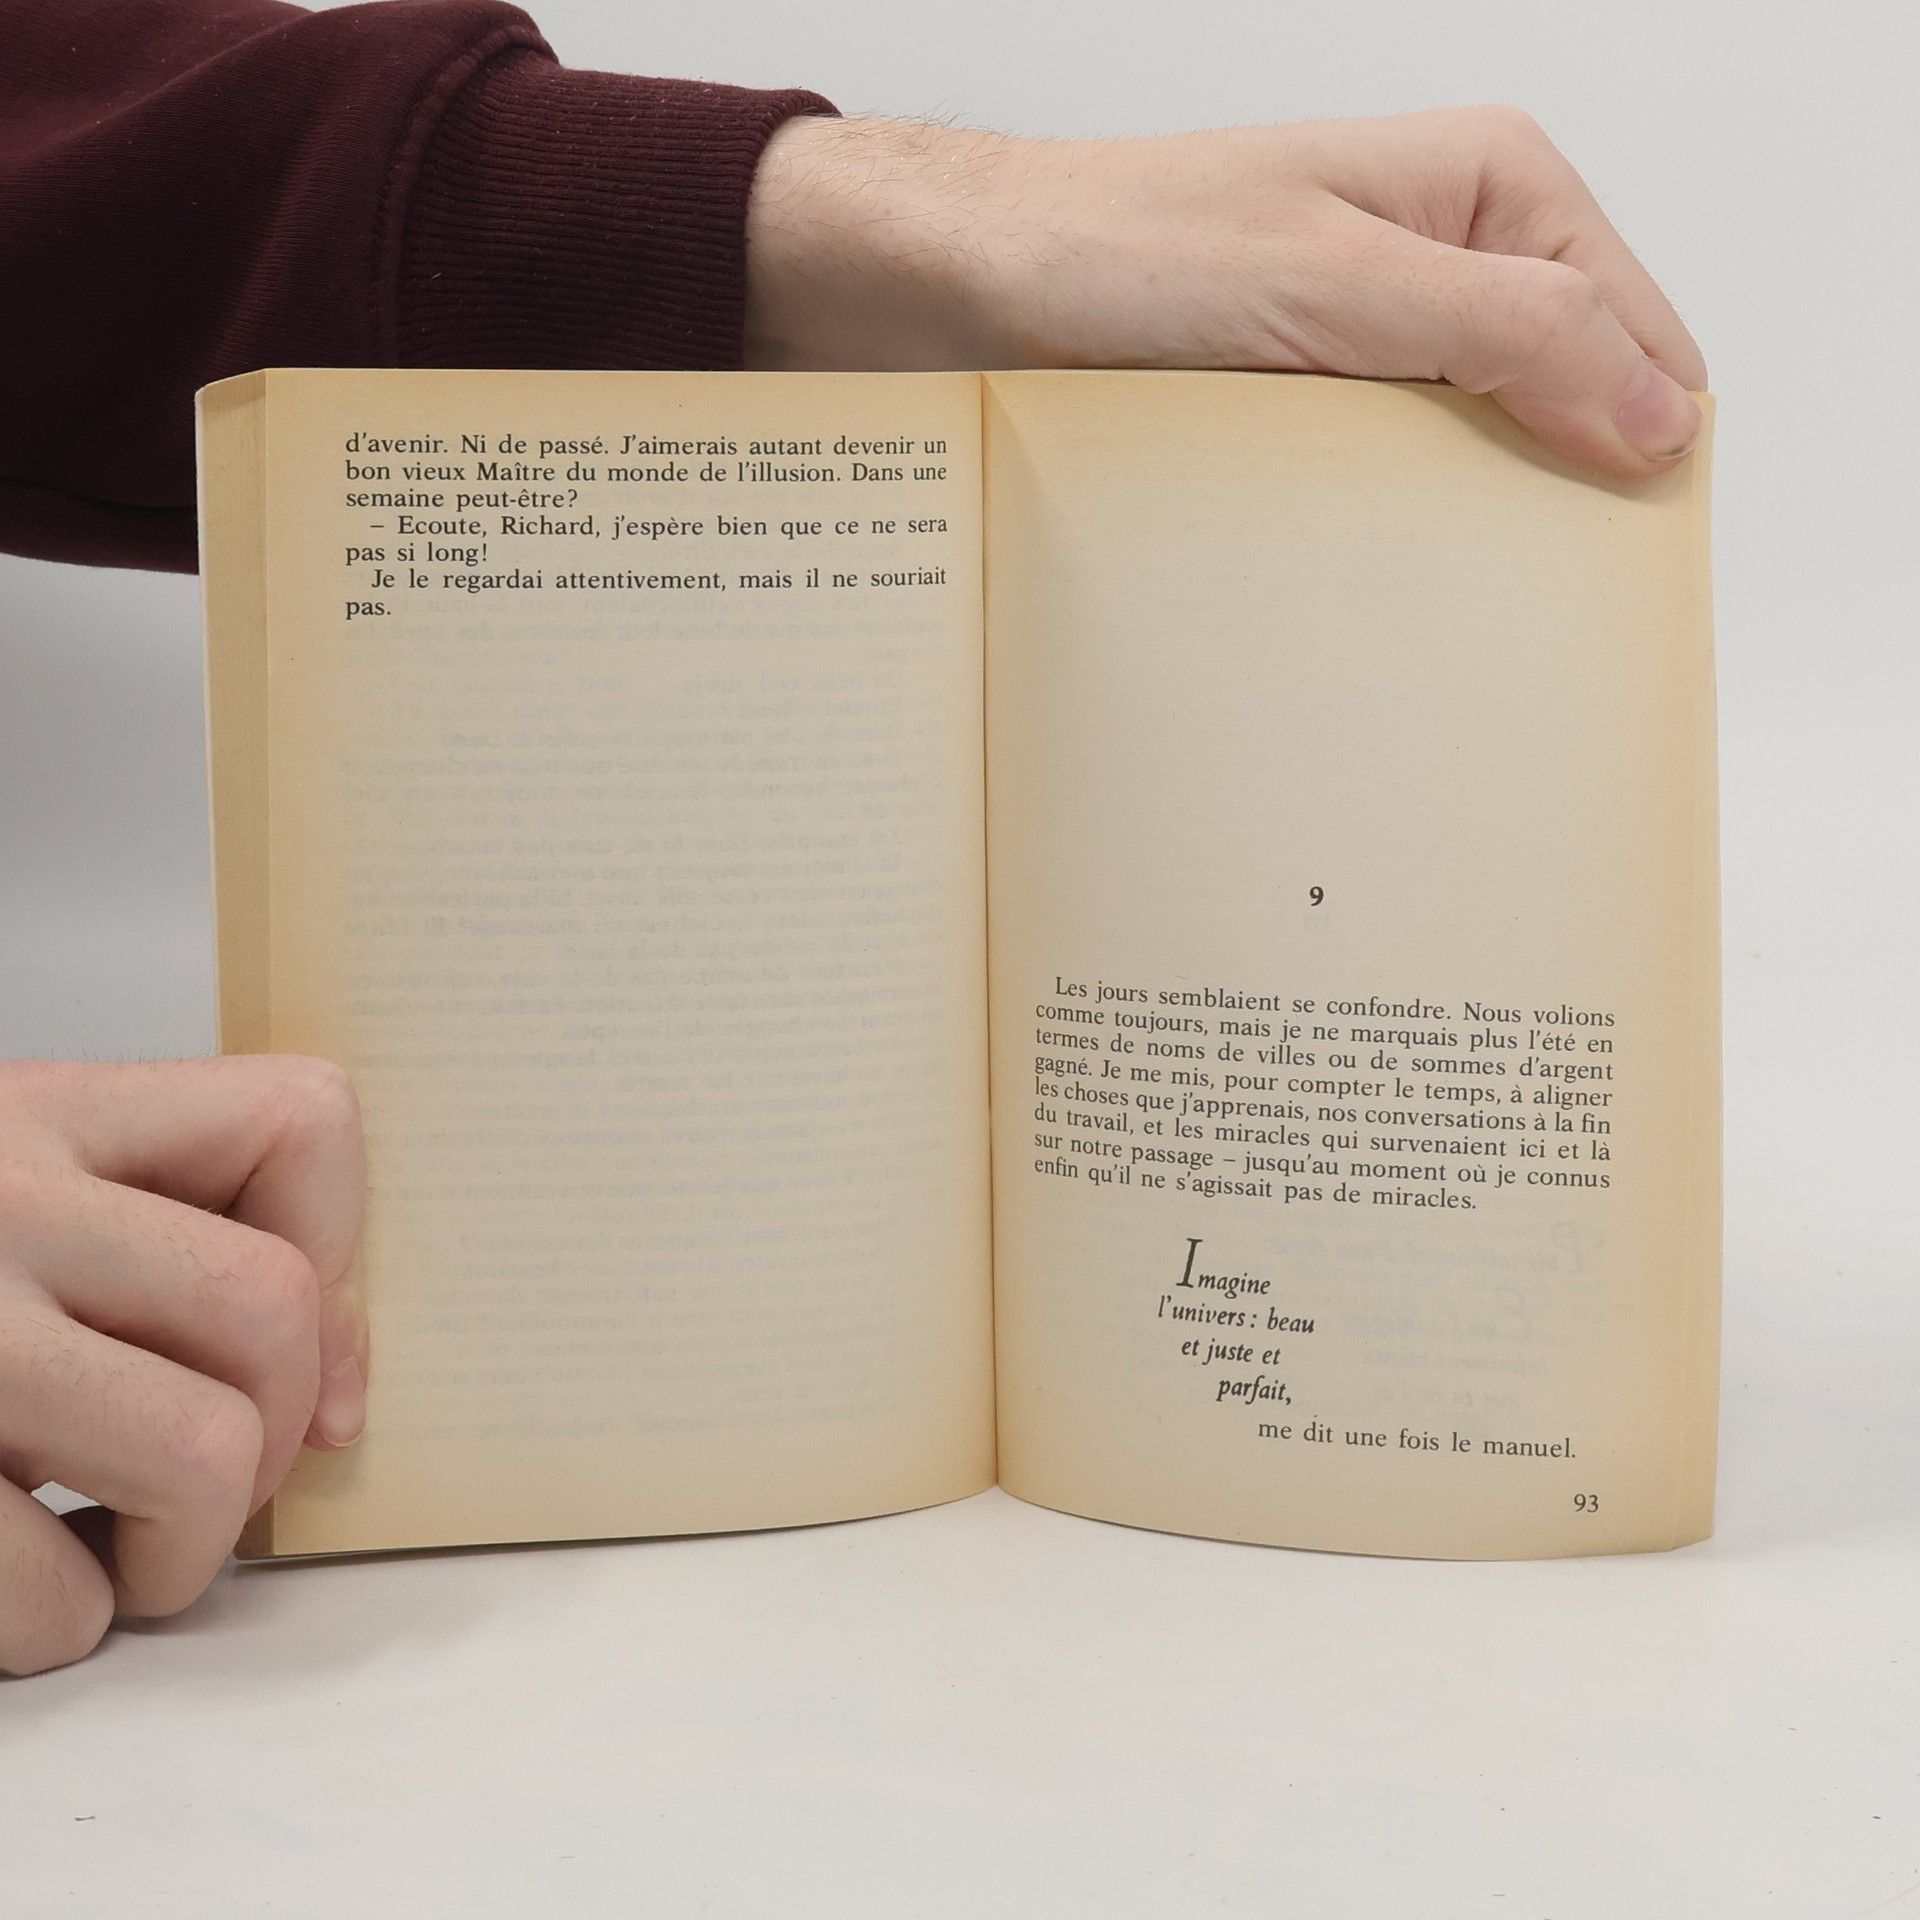 d'avenir. Ni de passé. J'aimerais autant devenir un
bon vieux Maître du monde de l'illusion. Dans une
semaine peut-être?
– Ecoute, Richard, j'espère bien que ce ne sera
pas si long!
Je le regardai attentivement, mais il ne souriait
pas.
9
Les jours semblaient se confondre. Nous volions
comme toujours, mais je ne marquais plus l'été en
termes de noms de villes ou de sommes d'argent
gagné. Je me mis, pour compter le temps, à aligner
les choses que j'apprenais, nos conversations à la fin
du travail, et les miracles qui survenaient ici et là
sur notre passage – jusqu'au moment où je connus
enfin qu'il ne s'agissait pas de miracles.
Imagine
l'univers : beau
et juste et
parfait,
me dit une fois le manuel.
93